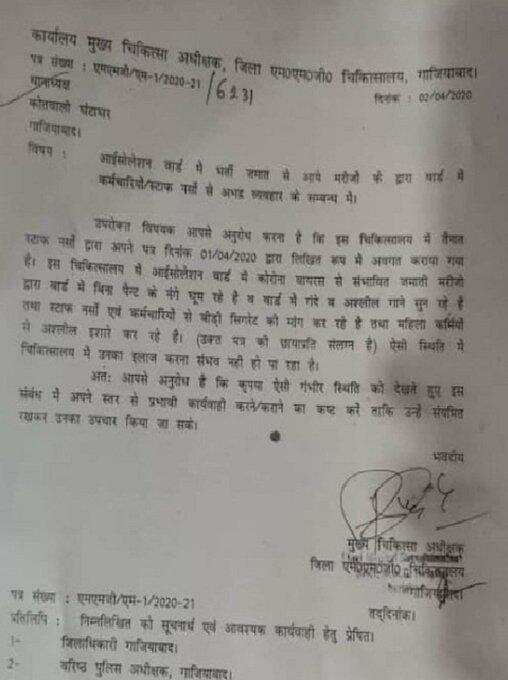 कार्यालय मुख्य चिकित्सा अधीक्षक, जिला एम0एम0जी0 चिकित्सालय, गाजियाबाद।
पत्र संख्या : एमएमजी/एम-1/2020-21/6231
दिनांक : 02/04/2020
थानाध्यक्ष
कोतवाली घंटाघर
गाजियाबाद।
विषय : आईसोलेशन वार्ड में भर्ती जमात से आये मरीजों के द्वारा वार्ड में
कर्मचारियों/स्टाफ नर्सो से अभद्र व्यवहार के सम्बन्ध में।
उपरोक्त विषयक आपसे अनुरोध करना है कि इस चिकित्सालय में तैनात
स्टाफ नर्सों द्वारा अपने पत्र दिनांक 01/04/2020 द्वारा लिखित रूप में अवगत कराया गया
है। इस चिकित्सालय में आईसोलेशन वार्ड में कोरोना वायरस से संभावित जमाती मरीजो
द्वारा वार्ड में बिना पैन्ट के नंगे घूम रहे है व वार्ड में गंदे व अश्लील गाने सुन रहे है
तथा स्टाफ नर्सो एवं कर्मचारियों से बीड़ी सिगरेट की मांग कर रहे है तथा महिला कर्मियों
से अश्लील इशारे कर रहे है। (उक्त पत्र की छायाप्रति संलग्न है) ऐसी स्थिति में
चिकित्सालय में उनका ईलाज करना संभव नही हो पा रहा है।
अतः आपसे अनुरोध है कि कृपया ऐसी गंभीर स्थिति को देखते हुए इस
संबंध में अपने स्तर से प्रभावी कार्यवाही करने/कराने का कष्ट करें ताकि उन्हें संयमित
रखकर उनका उपचार किया जा सके।
भवदीय
मुख्य चिकित्सा अधीक्षक
जिला एम0एम0जी0 चिकित्सालय
गाजियाबाद।
पत्र संख्या : एमएमजी/एम-1/2020-21
तद्दिनांक।
प्रतिलिपि : निम्नलिखित को सूचनार्थ एवं आवश्यक कार्यवाही हेतु प्रेषित।
1- जिलाधिकारी गाजियाबाद।
2- वरिष्ठ पुलिस अधीक्षक, गाजियाबाद।